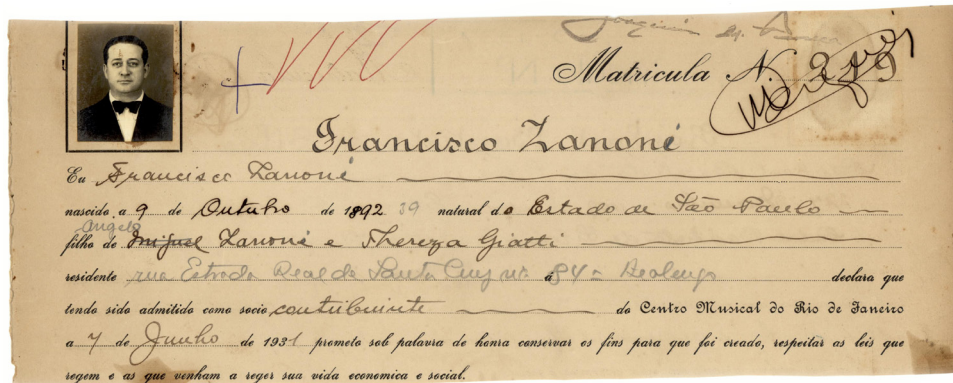 Joaquim
Matricula N.
Francisco Zanoné
Eu Francisco Zanoné
nascido a 9 de Outubro de 1892 39 natural do Estado de São Paulo
Angelo
filho de Miguel Zanoné e Thereza Giatti
residente rua Estrada Real de Santa Cruz nº 84 Realengo declara que
tendo sido admitido como socio contribuinte do Centro Musical do Rio de Janeiro
a 7 de Junho de 1931 prometo sob palavra de honra conservar os fins para que foi creado, respeitar as leis que
regem e as que venham a reger sua vida economica e social.